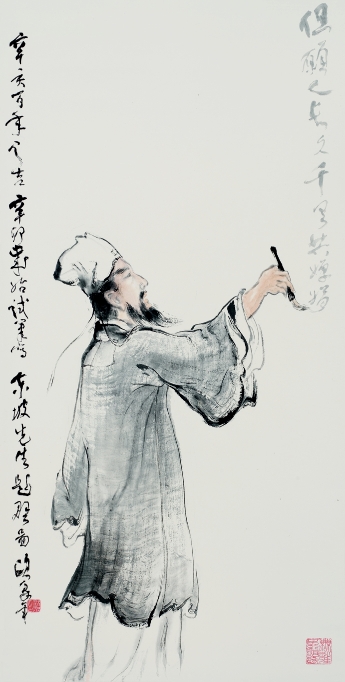 但願人長久千里共嬋娟
辛亥百年之吉辛卯歲始試筆寫東坡先生題壁圖